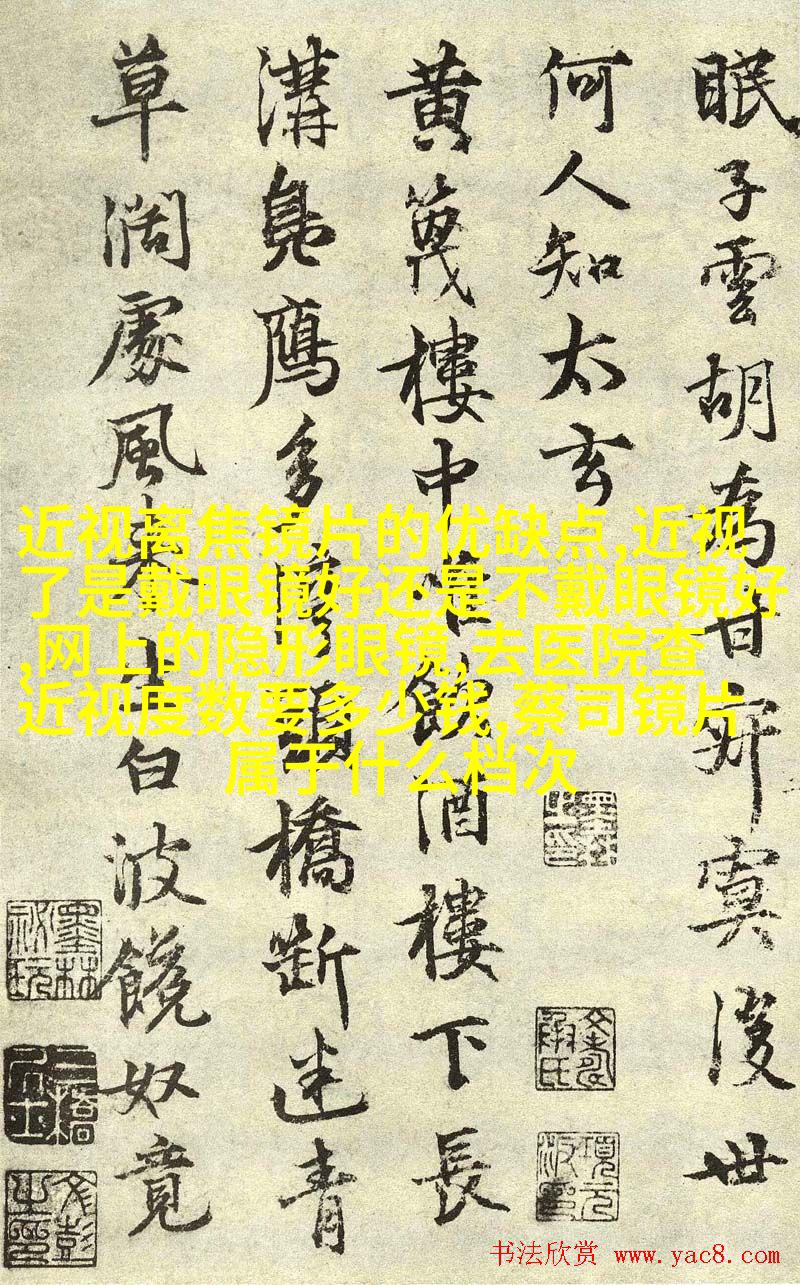 眠子雲胡為甘寂寞後世
何人知太玄
黃篾樓中酒樓下長
溝鳧鴈多頭橋斷迷青
草闊處風來白波饒奴竟
近视离焦镜片的优缺点,近视
了是戴眼镜好还是不戴眼镜好
,网上的隐形眼镜,去医院查
近视度数要多少钱,蔡司镜片
属于什么档次
书法欣赏 www.yac8.com